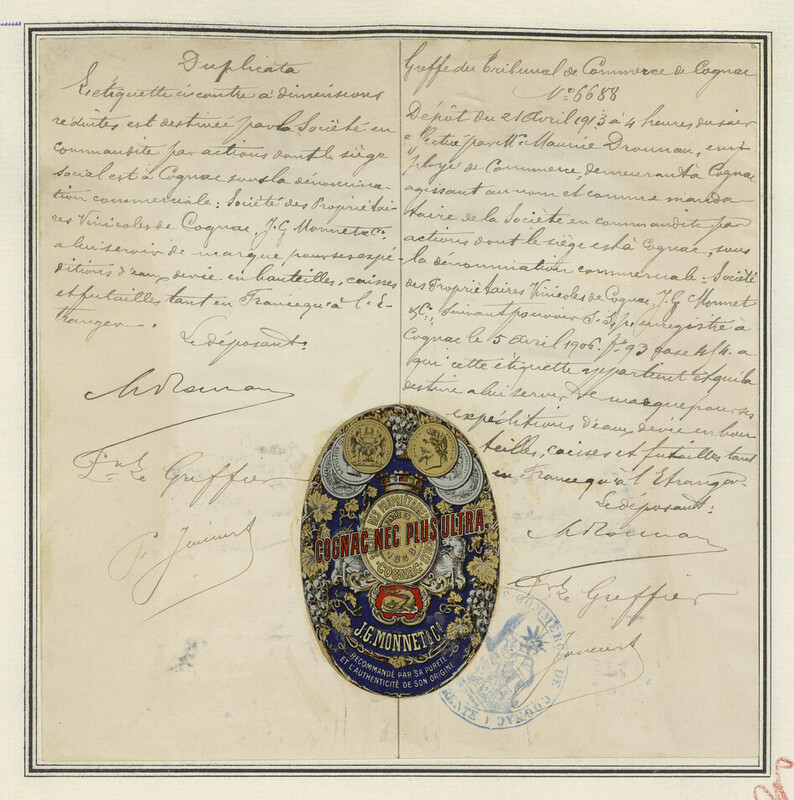 Duplicata
L'étiquette ci contre à dimensions
réduites est destinée par la Société en
commandite par actions dont le siège
social est à Cognac sous la dénomina-
tion commerciale: Société des Propriétai-
res Vinicoles de Cognac, J. G Monnet & Cº
a lui servir de marque pour ses expé-
ditions d'eaux de vie en bouteilles, caisses
et futailles tant en France qu'à l'E-
tranger.
Le déposant:
Le Greffier
Greffe du Tribunal de Commerce de Cognac
Nº 6688
Dépôt du 21 Avril 1913 à 4 heures du soir
par Mr. Maurice Drounau, em-
ployé de Commerce, demeurant à Cognac
agissant au nom et comme manda-
taire de la Société en commandite par
actions dont le siège est à Cognac, sous
la dénomination commerciale: Société
des Propriétaires Vinicoles de Cognac, J. G. Monnet
& Cº, suivant pouvoir S. S. p. enregistré à
Cognac le 5 Avril 1906. fº 93 case 4/4. a
qui cette étiquette appartient et qui la
destine a lui servir de marque pour ses
expéditions d'eaux de vie en bou-
teilles, caisses et futailles tant
en France qu'à l'Etranger.
Le déposant:
Le Greffier
DES PROPRIÉTAIRES
COGNAC NEC PLUS ULTRA.
1838
COGNAC
J.G. MONNET & Cº
RECOMMANDÉ PAR SA PURETÉ
ET L'AUTHENTICITÉ DE SON ORIGINE
COMMERCE DE COGNAC